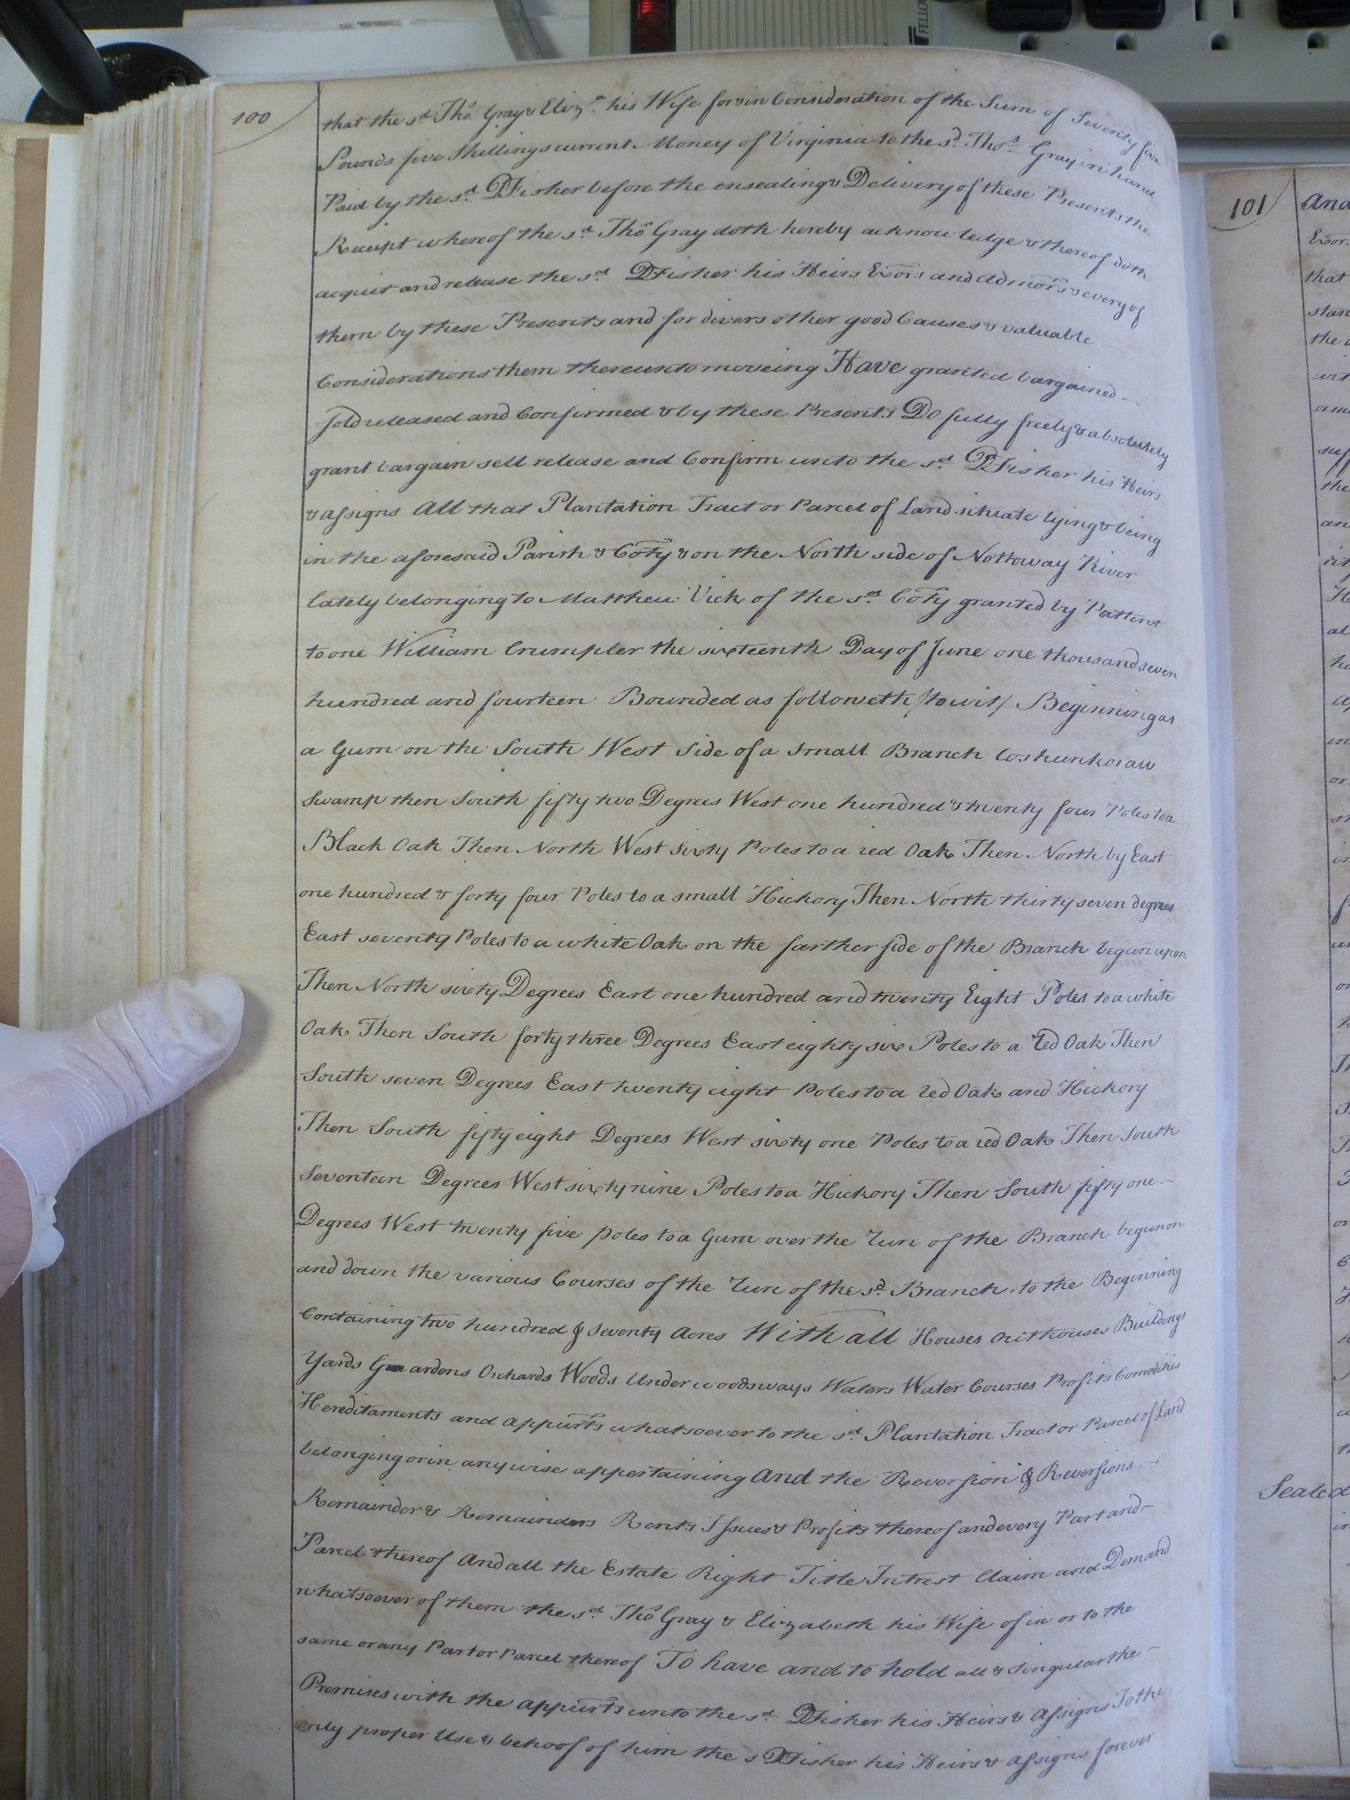 100
that the sd. Thos. Gray & Eliza. his Wife for & in Consideration of the Sum of Seventy five
Pounds five Shillings current Money of Virginia to the sd. Thos. Gray in hand
Paid by the sd. D Fisher before the ensealing & Delivery of these Presents the
Receipt whereof the sd. Thos Gray doth hereby acknowledge & thereof doth
acquit and release the sd. D Fisher his Heirs Exors and Admors & every of
them by these Presents and for divers other good Causes & valuable
Considerations them thereunto moveing Have granted bargained
Sold released and Confirmed & by these Presents Do fully freely & absolutely
grant bargain sell release and Confirm unto the sd. D Fisher his Heirs
& assigns All that Plantation Tract or Parcel of Land situate lying & being
in the aforesaid Parish & Coty & on the North side of Nottoway River
lately belonging to Matthew Vick of the sd. Coty granted by Pattent
to one William Crumpler the sixteenth Day of June one thousand seven
hundred and fourteen Bounded as followeth /towit/ Beginning at
a Gum on the South West Side of a Small Branch
Swamp then South fifty two Degrees West one hundred & twenty four Poles to a
Black Oak Then North West sixty Poles to a red Oak Then North by East
one hundred & forty four Poles to a small Hickory Then North thirty seven degrees
East seventy Poles to a white Oak on the farther side of the Branch begun upon
Then North sixty Degrees East one hundred and twenty Eight Poles to a white
Oak Then South forty three Degrees East eighty six Poles to a red Oak Then
South seven Degrees East twenty eight Poles to a red Oak and Hickory
Then South fifty eight Degrees West sixty one Poles to a red Oak Then South
Seventeen Degrees West sixty nine Poles to a Hickory Then South fifty one
Degrees West twenty five poles to a Gum over the Run of the Branch begun on
and down the various Courses of the Run of the sd. Branch to the Beginning
Containing two hundred & Seventy Acres With all Houses Outhouses Buildings
Yards Gardens Orchards Woods Underwoods ways Waters Water Courses Profits Comodities
Hereditaments and appurts whatsoever to the sd. Plantation Tract or Parcel of Land
belonging or in any wise appertaining And the Reversion & Reversions
Remainder & Remainders Rents Issues & Profits thereof and every Part and
Parcel thereof And all the Estate Right Title Intrest Claim and Demand
whatsoever of them the sd. Thos Gray & Elizabeth his Wife of in or to the
same or any Part or Parcel thereof To have and to hold all & Singular the
Premises with the appurts unto the sd. D Fisher his Heirs & Assigns To the
only proper Use & behoof of him the s D Fisher his Heirs & assigns forever
101
And
Exor
that
the
Sealed